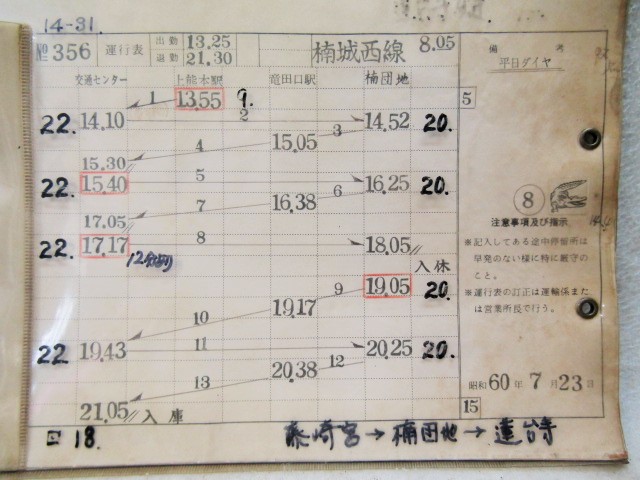 14-31.
№356 運行表 出勤 13.25 退勤 21.30 楠城西線 8.05 備考
平日ダイヤ
交通センター 上熊本駅 竜田口駅 楠団地
1 13.55 9. 5
22. 14.10 2 14.52 20.
3
4 15.05
15.30
22. 15.40 5 16.25 20.
6
7 16.38
17.05
22. 17.17 8 18.05
入休
9 19.05 20.
10 19.17
22 19.43 11 20.25 20.
12
13 20.38
21.05 入庫
8
注意事項及び指示
※記入してある途中停留所は
早発のない様に特に厳守の
こと。
※運行表の訂正は運輸係また
は営業所長で行う。
昭和60年7月23日
15
18. 藤崎宮→楠団地→蓮台寺